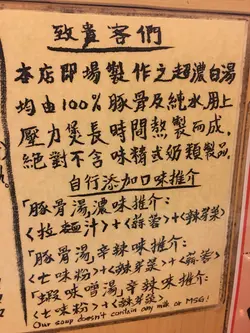 致貴客們
本店即場製作之超濃白湯
均由100%豚骨及純水用上
壓力煲長時間熬製而成，
絕對不含味精或奶類製品。
自行添加口味推介
「豚骨湯，濃味推介：
<拉麵汁>+<蒜蓉>+<辣芽菜>
「豚骨湯」辛辣味推介：
<七味粉>+<辣芽菜>+<蒜蓉>
「蝦味噌湯」辛辣味推介：
<七味粉>+<辣芽菜>
Our soup doesn't contain any milk or MSG!